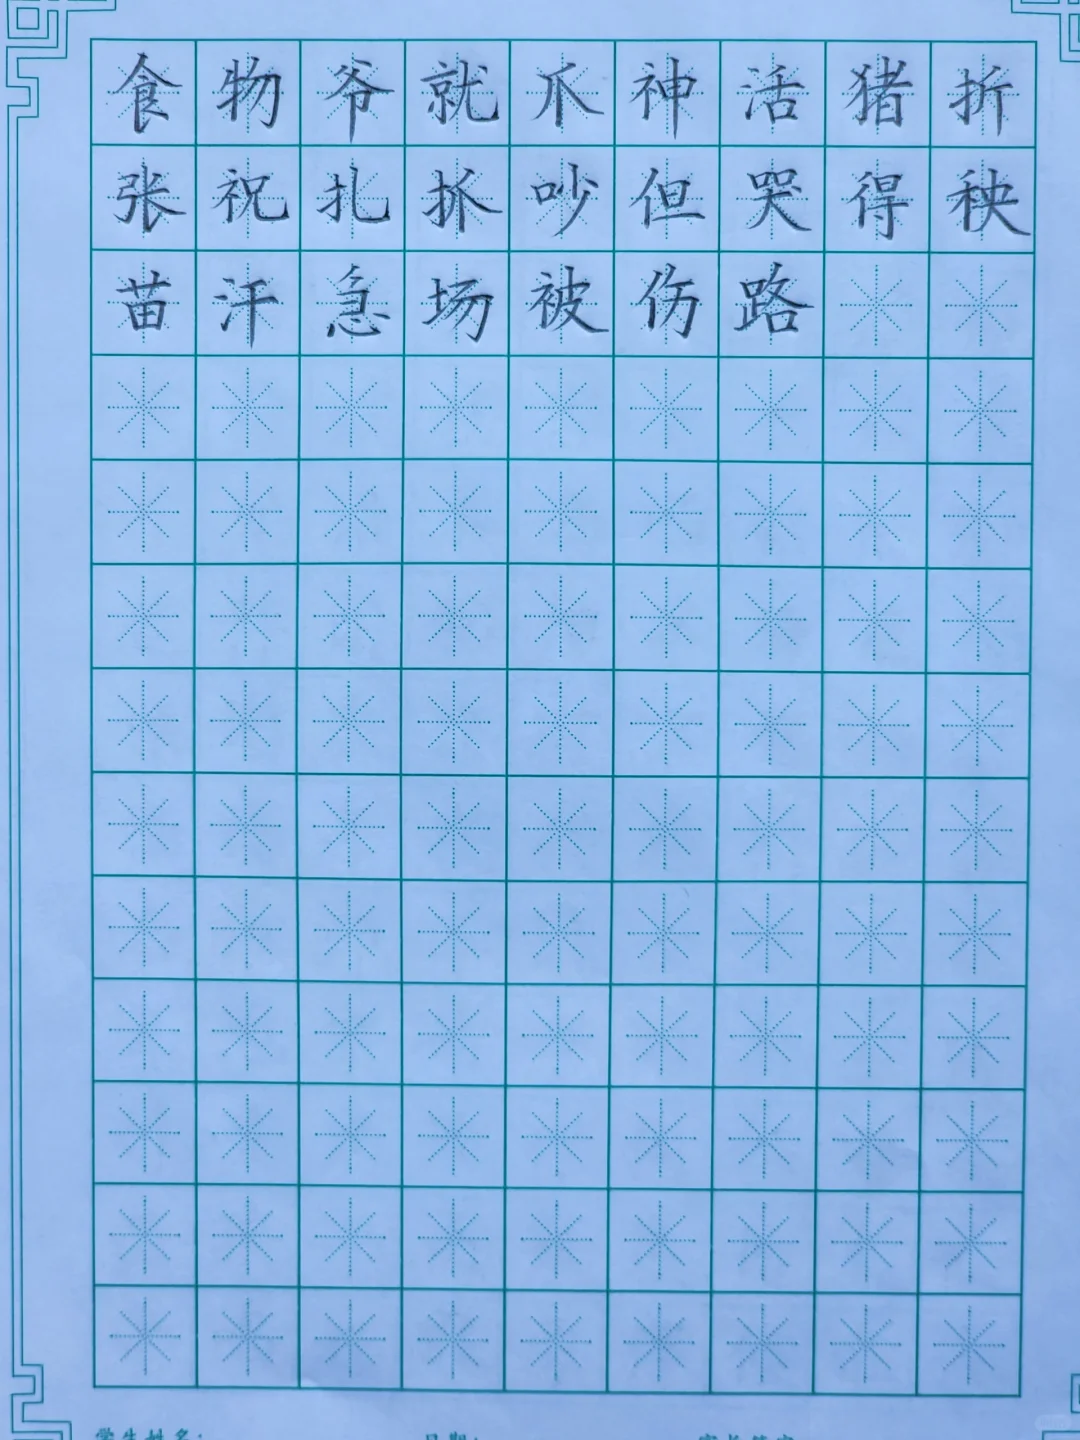 食物爷就爪神活猪折
张祝扎抓吵但哭得秧
苗汗急场被伤路
学生姓名: 日期: 家长签字